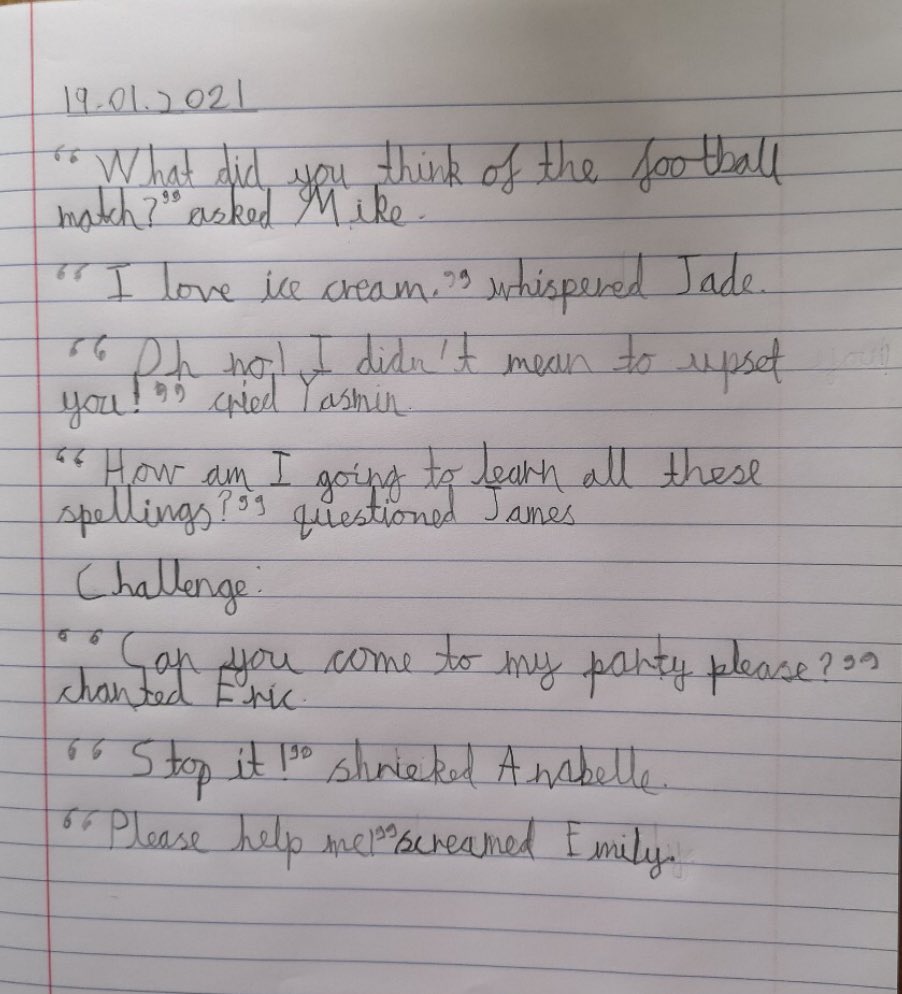 19.01.2021
“What did you think of the football
match?” asked Mike.
“I love ice cream.” whispered Jade.
“Oh no! I didn't mean to upset
you!” cried Yasmin.
“How am I going to learn all these
spellings?” questioned James
Challenge:
“Can you come to my party please?”
chanted Eric.
“Stop it!” shrieked Anabelle.
“Please help me!” screamed Emily.